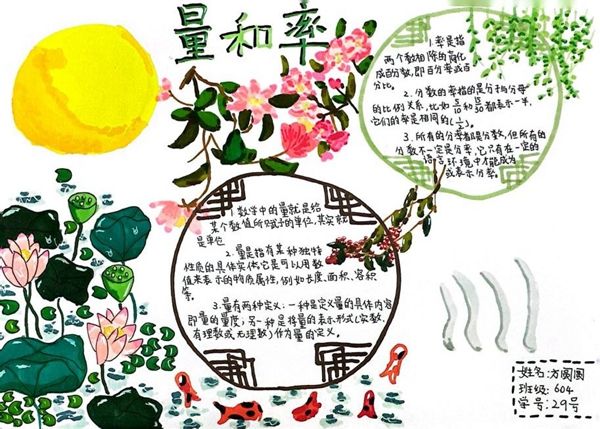 量和率
1.率是指
两个数相除的商化
成百分数,即百分率或百
分比。
2.分数的率指的是分子与分母
的比例关系,比如5/10和15/30都表示一半,
它们的率是相同的(1/2)。
3.所有的分率都是分数,但所有的
分数不一定是分率,它只有在一定的
语言环境中才能成为
或表示分率。
1.数学中的量就是给
某个数值所赋予的单位,其实就
是单位
2.量是指有某种独特
性质的具体实体,它是可以用数
值来表示的物质属性,例如长度、面积、容积
等。
3.量有两种定义:一种是定义量的具体内容
即量的量度;另一种是将量的表示形式(实数、
有理数或无理数)作为量的定义。
姓名:方圆圆
班级:604
学号:29号